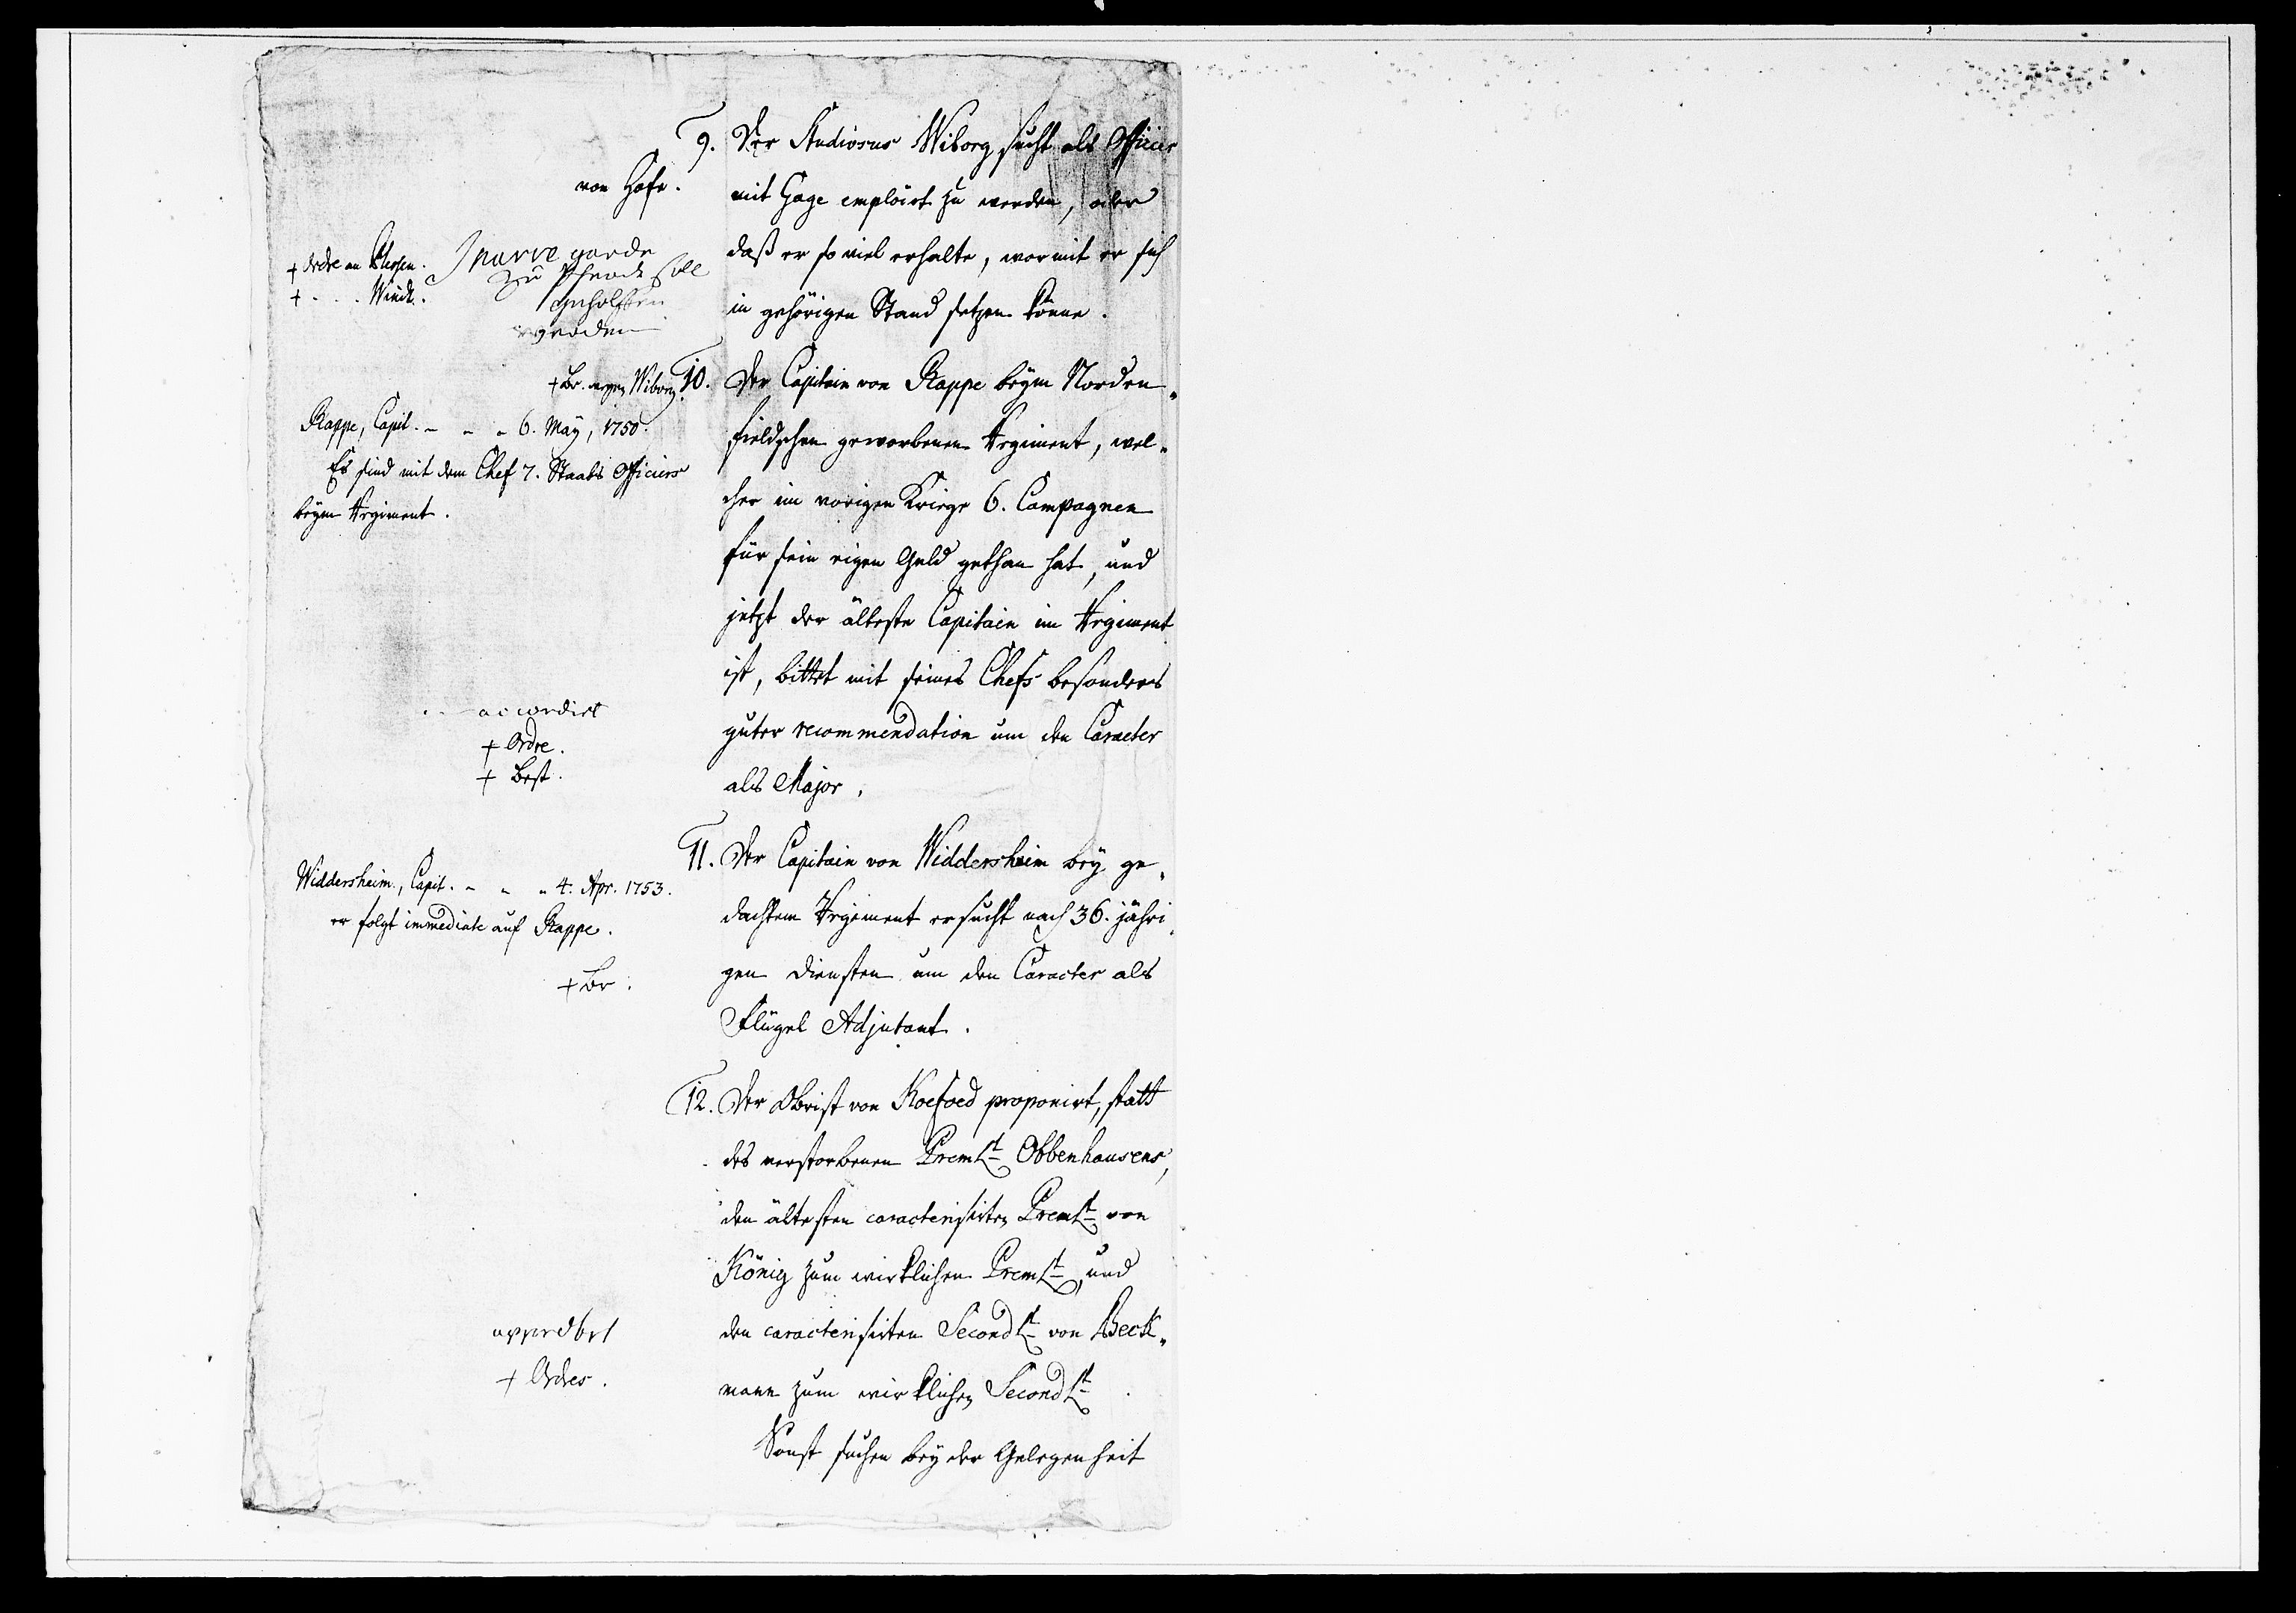 9. Der Studiosus Wiborg sucht als Officier
mit Gage emploirt zu werden, oder
daß er so viel erhalte, wormit er sich
in gehörigen Stand setzen könne.
von Hofe.
+ Ordre an
+ - - -
garde
zu Pferde soll
geholffen
werden
+ Br. wegen Wiborg.
10. Der Capitain von Rappe beym Norden„
fieldschen geworbenen Regiment, wel„
cher im vorigen Kriege 6. Campagnen
für sein eigen Geld gethan hat, und
jetzt der älteste Capitain im Regiment
ist, bittet mit seines Chefs besonders
guter recommendation um den Caracter
als Major.
Rappe, Capit. - - - 6. May, 1750.
Es sind mit dem Chef 7. Staabs Officiers
beym Regiment.
accordirt
+ Ordre.
+ Best.
11. Der Capitain von Widdersheim bey ge„
dachtem Regiment ersucht nach 36. jähri„
gen Diensten um den Caracter als
Flügel Adjutant.
Widdersheim, Capit. - - - 4. Apr. 1753.
er folgt immediate auf Rappe.
+ Br.
12. Der Obrist von Koefoed proponirt, statt
des verstorbenen PremLt Obbenhausens,
den ältesten caracterisirten PremLt von
König zum wirklichen PremLt, und
den caracterisirten SecondLt von Beck„
mann zum wirklichen SecondLt.
approbirt
+ Ordres.
Sonst suchen bey der Gelegenheit